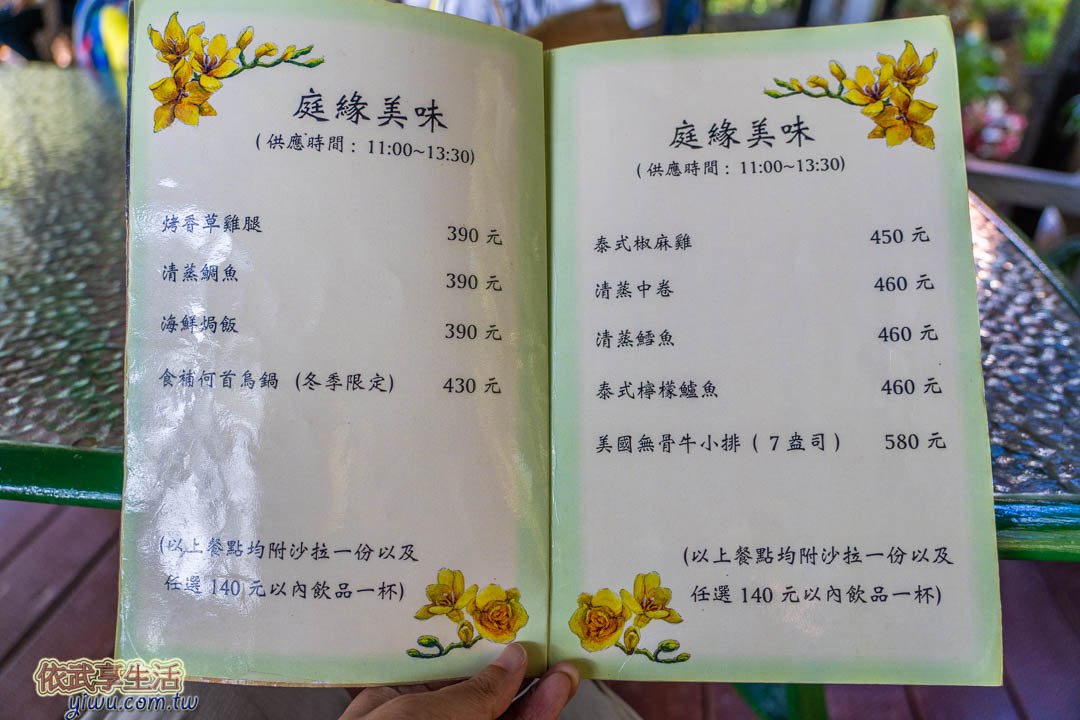 庭緣美味
(供應時間：11:00~13:30)
烤香草雞腿 390 元
清蒸鯛魚 390 元
海鮮焗飯 390 元
食補何首烏鍋 (冬季限定) 430 元
(以上餐點均附沙拉一份以及
任選 140 元以內飲品一杯)
庭緣美味
(供應時間：11:00~13:30)
泰式椒麻雞 450 元
清蒸中卷 460 元
清蒸鱈魚 460 元
泰式檸檬鱸魚 460 元
美國無骨牛小排 ( 7 盎司 ) 580 元
(以上餐點均附沙拉一份以及
任選 140 元以內飲品一杯)
依武享生活
yiwu.com.tw